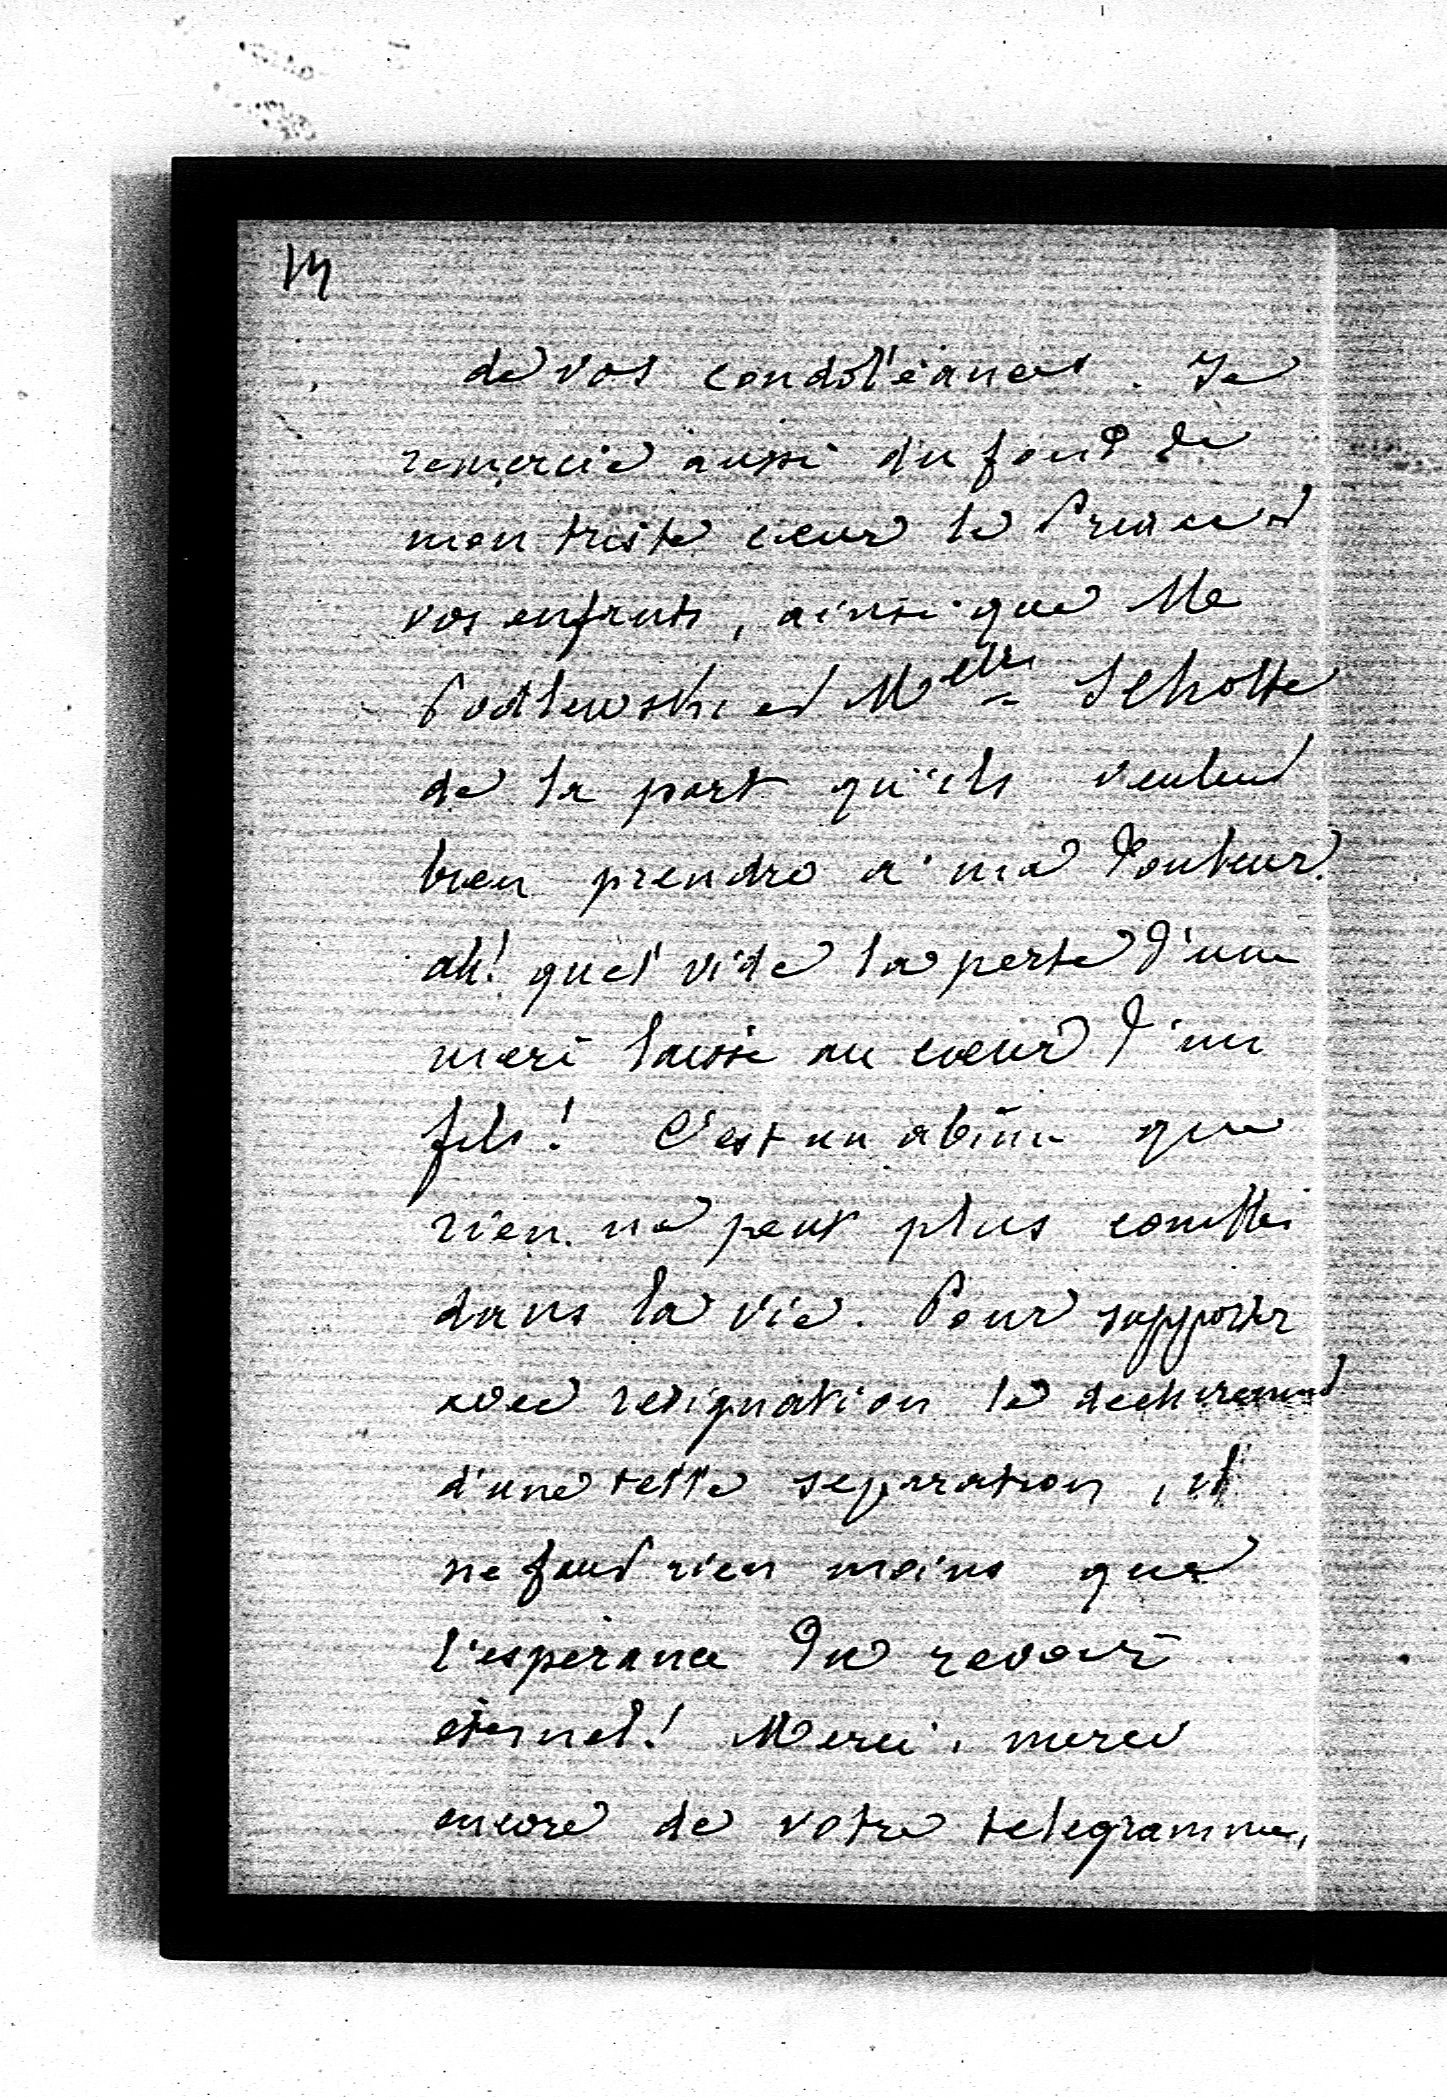 de vos condoléances. Je
remercie aussi du fond de
mon triste cœur le Prince et
vos enfants, ainsi que Me
Podlewski et Melle Scholte
de la part qu'ils veulent
bien prendre a ma douleur.
ah! quel vide la perte d'une
mère laisse au cœur d'un
fils! C'est un abîme que
rien ne peut plus combler
dans la vie. Pour supporter
avec resignation le dechirement
d'une telle separation, il
ne faut rien moins que
l'esperance du revoir
éternel! Merci, merci
encore de votre telegramme,